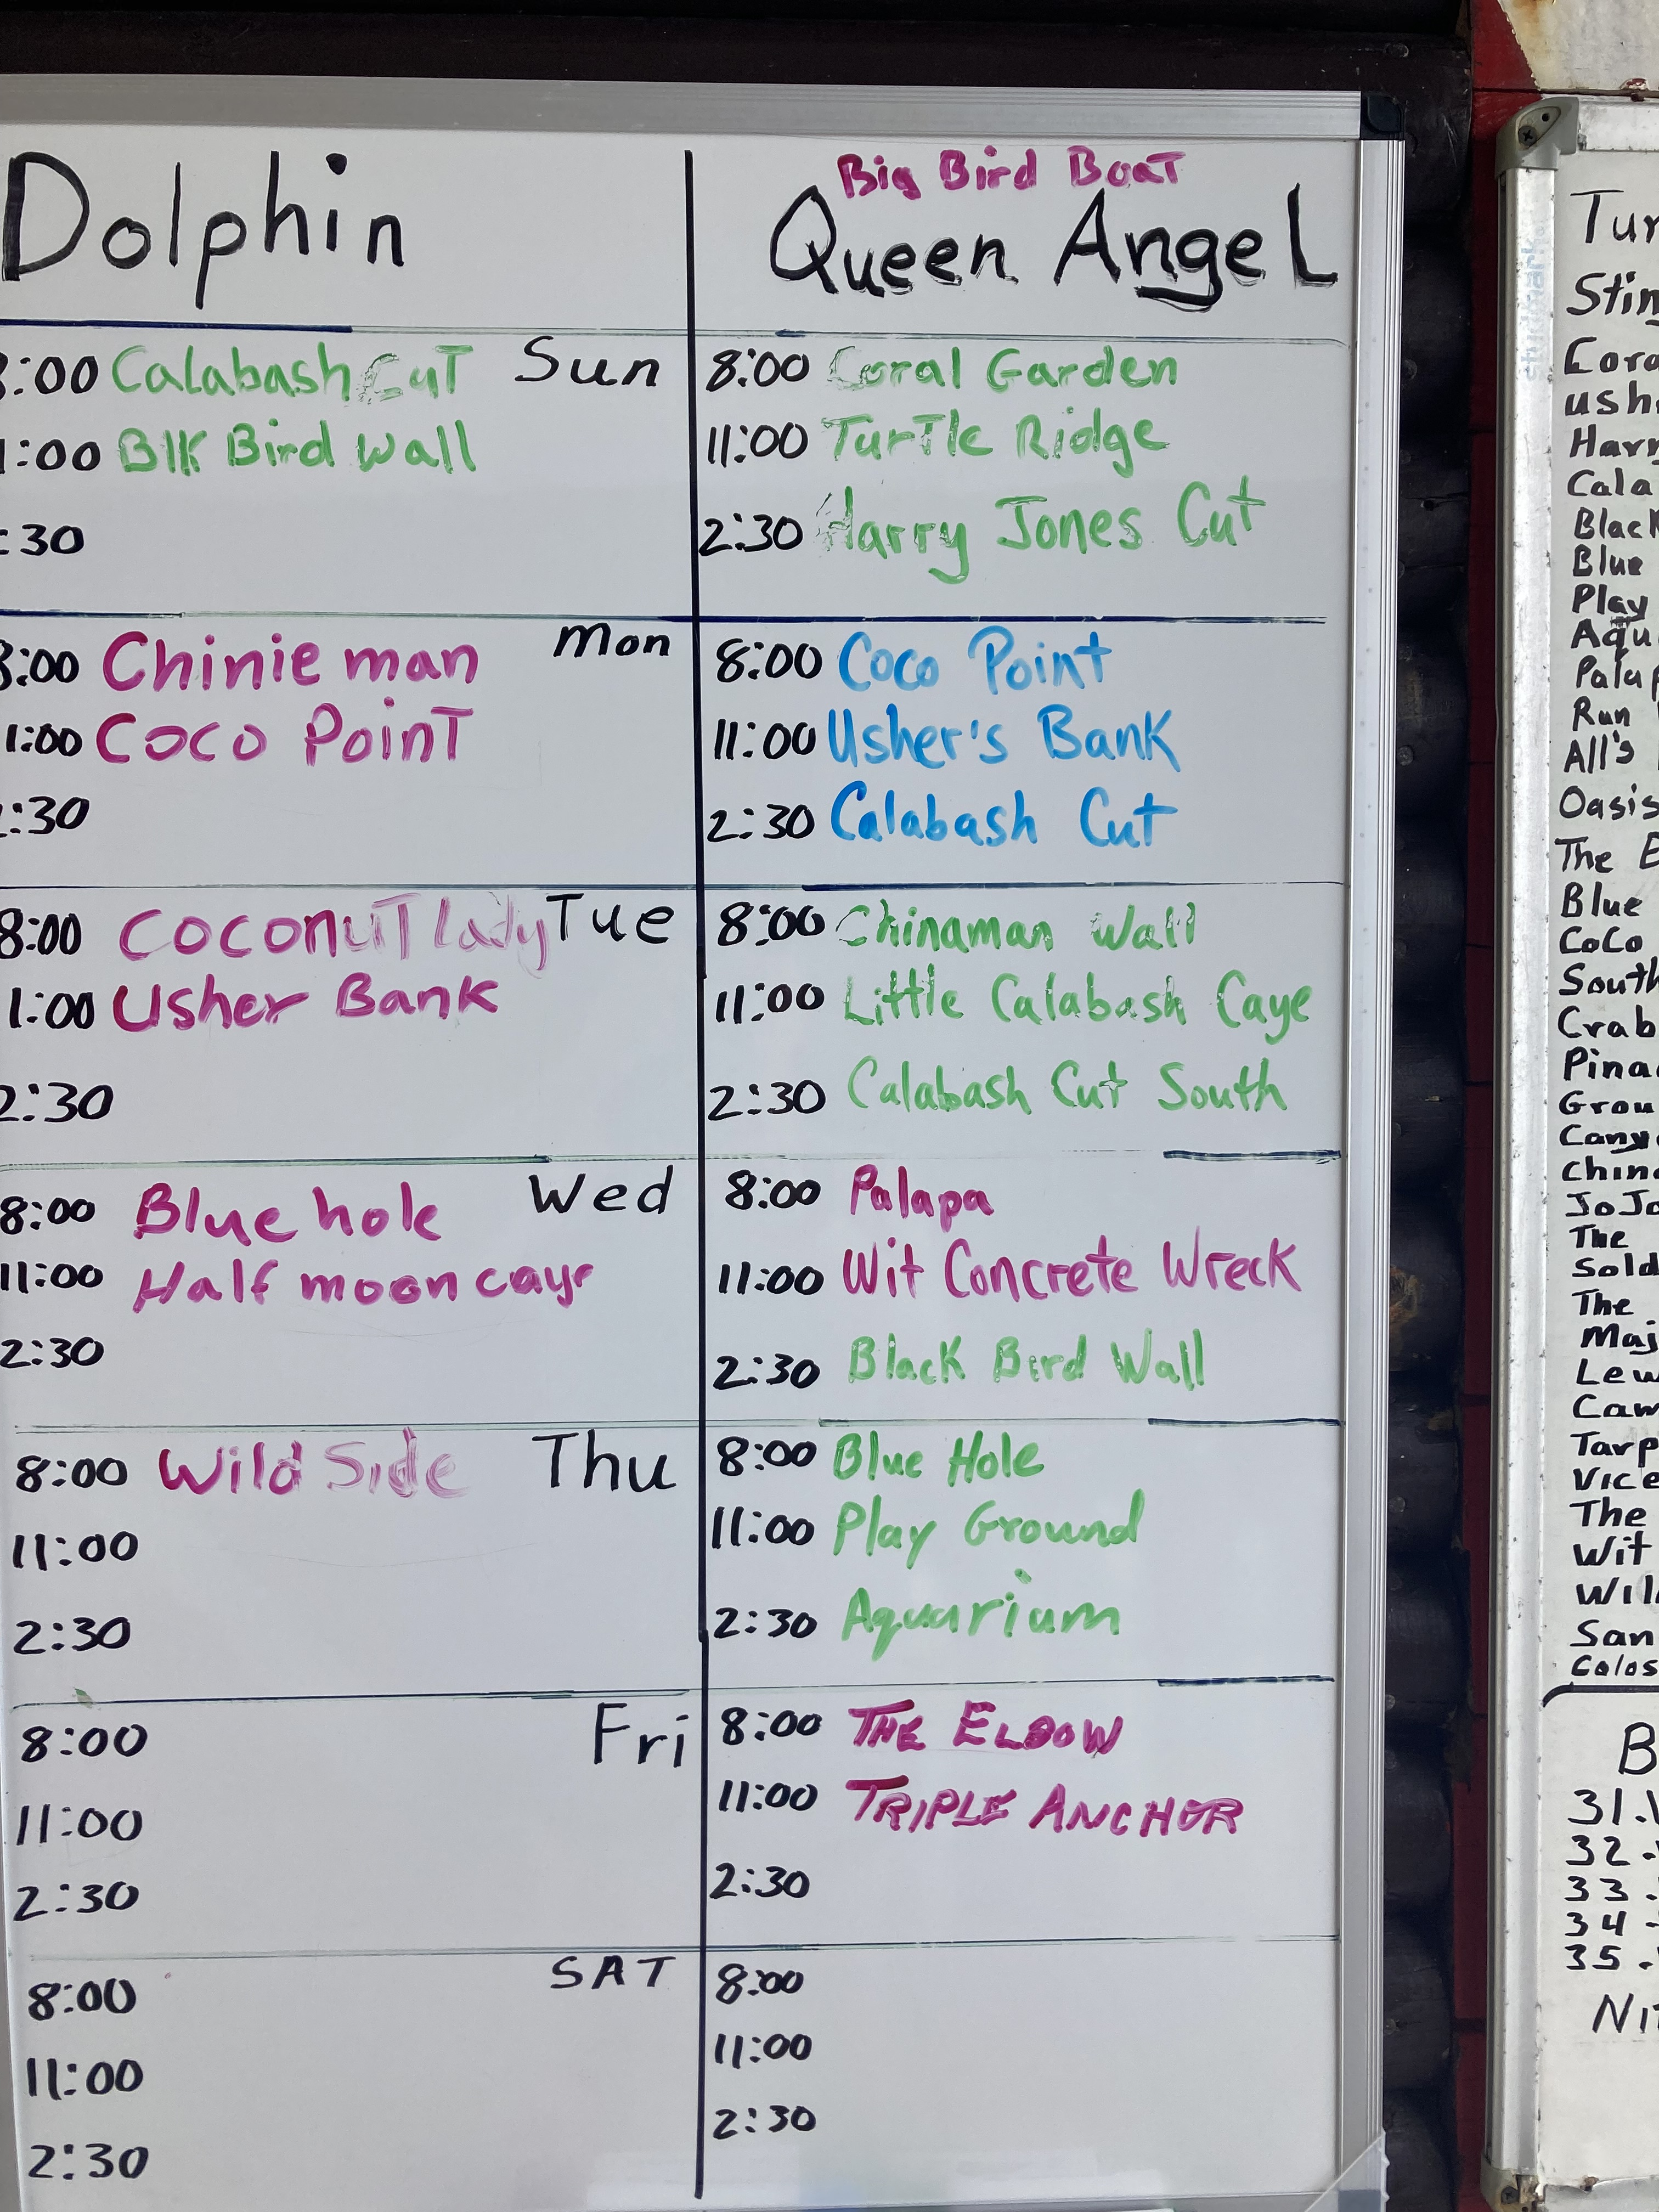 Dolphin
:00 Calabash Cut Sun
1:00 Blk Bird Wall
:30
8:00 Chinie man Mon
1:00 Coco Point
:30
8:00 Coconut lady Tue
1:00 Usher Bank
2:30
8:00 Blue hole Wed
11:00 Half moon caye
2:30
8:00 Wild Side Thu
11:00
2:30
8:00 Fri
11:00
2:30
8:00 SAT
11:00
2:30
Big Bird Boat
Queen Angel
8:00 Coral Garden
11:00 Turtle Ridge
2:30 Harry Jones Cut
8:00 Coco Point
11:00 Usher's Bank
2:30 Calabash Cut
8:00 Chinaman Wall
11:00 Little Calabash Caye
2:30 Calabash Cut South
8:00 Palapa
11:00 Wit Concrete Wreck
2:30 Black Bird Wall
8:00 Blue Hole
11:00 Play Ground
2:30 Aquarium
8:00 THE ELBOW
11:00 TRIPLE ANCHOR
2:30
8:00
11:00
2:30
Tur
Stin
Cora
Ush
Harr
Cala
Black
Blue
Play
Aqu
Palap
Run
All's
Oasis
The
Blue
CoCo
South
Crab
Pina
Grou
Cany
China
JoJo
The
Sold
The
Maj
Lew
Cam
Tarp
Vice
The
Wit
Wil
San
Colos
B
31.
32.
33.
34
35.
Nit